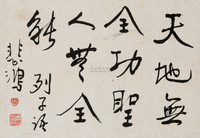 天地無
全功聖
人無全
能 列子語
悲鴻